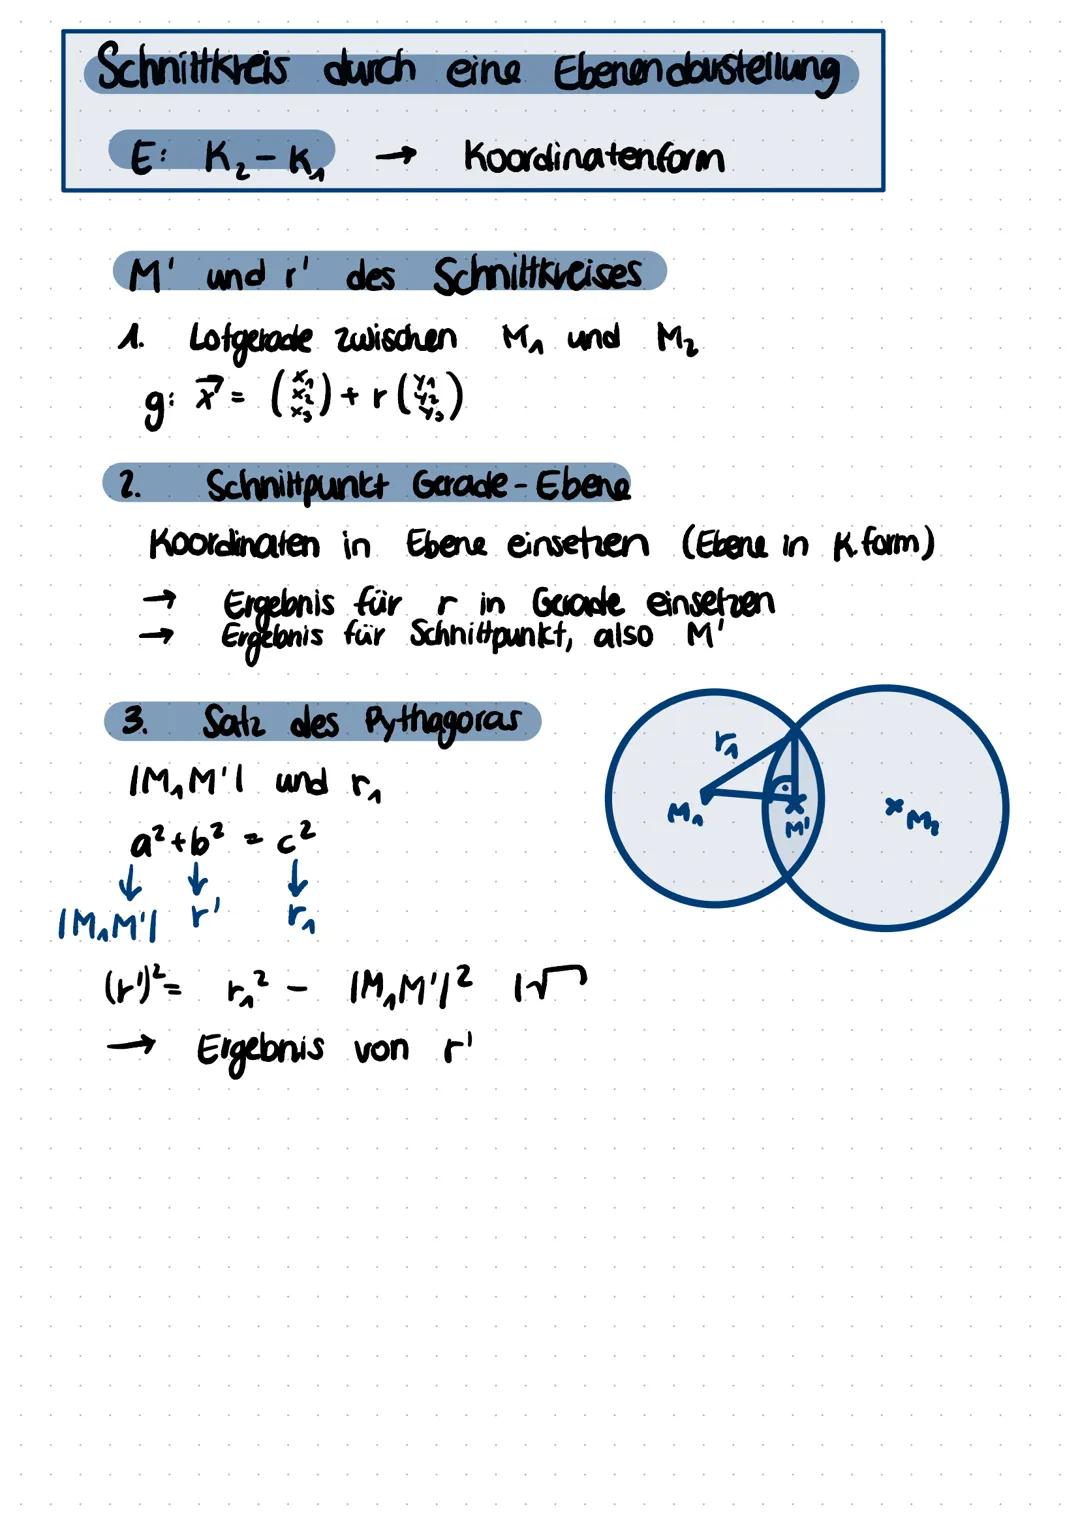 Schnittkreis durch eine Ebenendarstellung
E: K₂ - K₁ → Koordinatenform
M' und r' des Schnittkreises
1. Lotgerade zwischen M₁ und M₂
g: x⃗ = (x₁ x₂ x₃) + r (y₁ y₂ y₃)
2. Schnittpunkt Gerade - Ebene
Koordinaten in Ebene einsetzen (Ebene in K.form)
→ Ergebnis für r in Gerade einsetzen
→ Ergebnis für Schnittpunkt, also M'
3. Satz des Pythagoras
|M₁M'| und r₁
a² + b² = c²
↓ ↓ ↓
|M₁M'| r' r₁
(r')² = r₁² - |M₁M'|² |√
→ Ergebnis von r'
r₁
M₁
M'
M₂